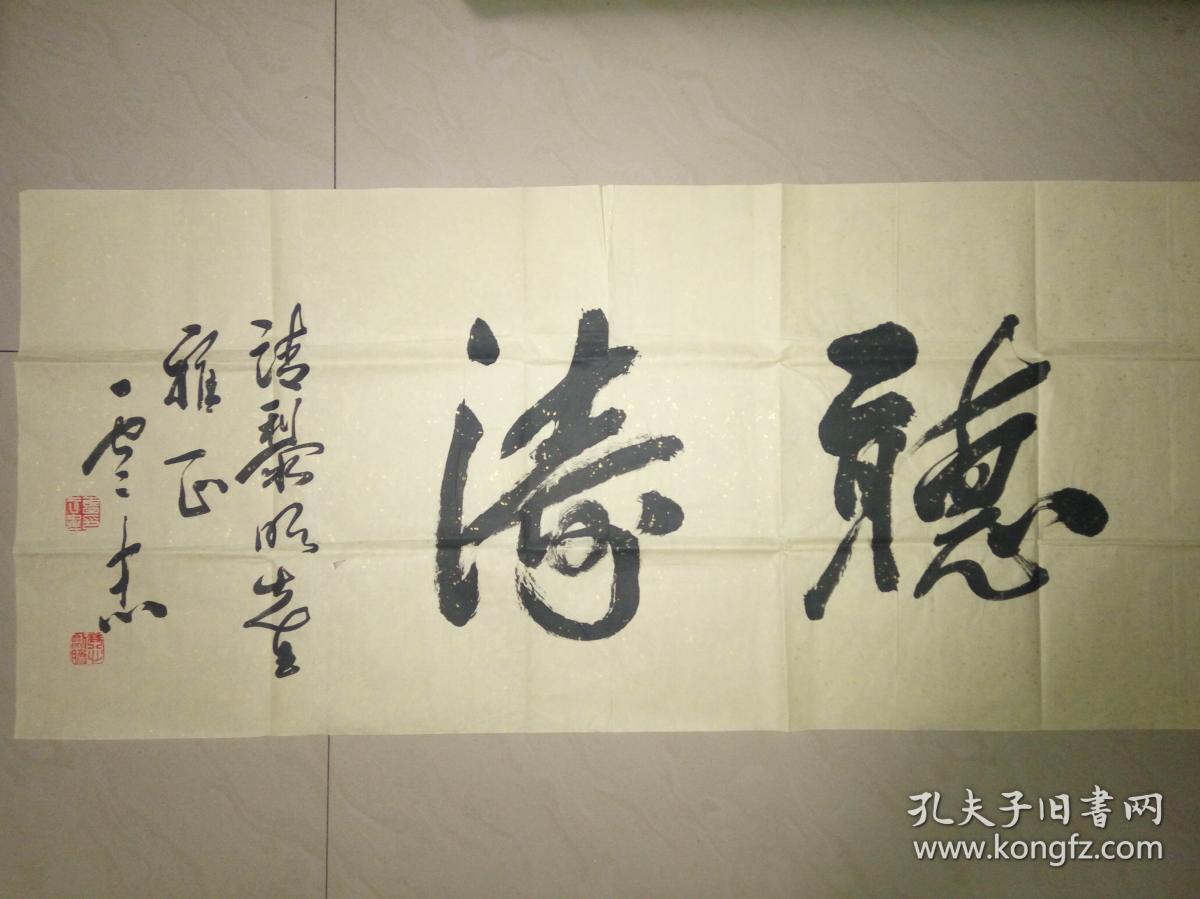 聽濤
請黎明先生
雅正
孔夫子旧書网
www.kongfz.com